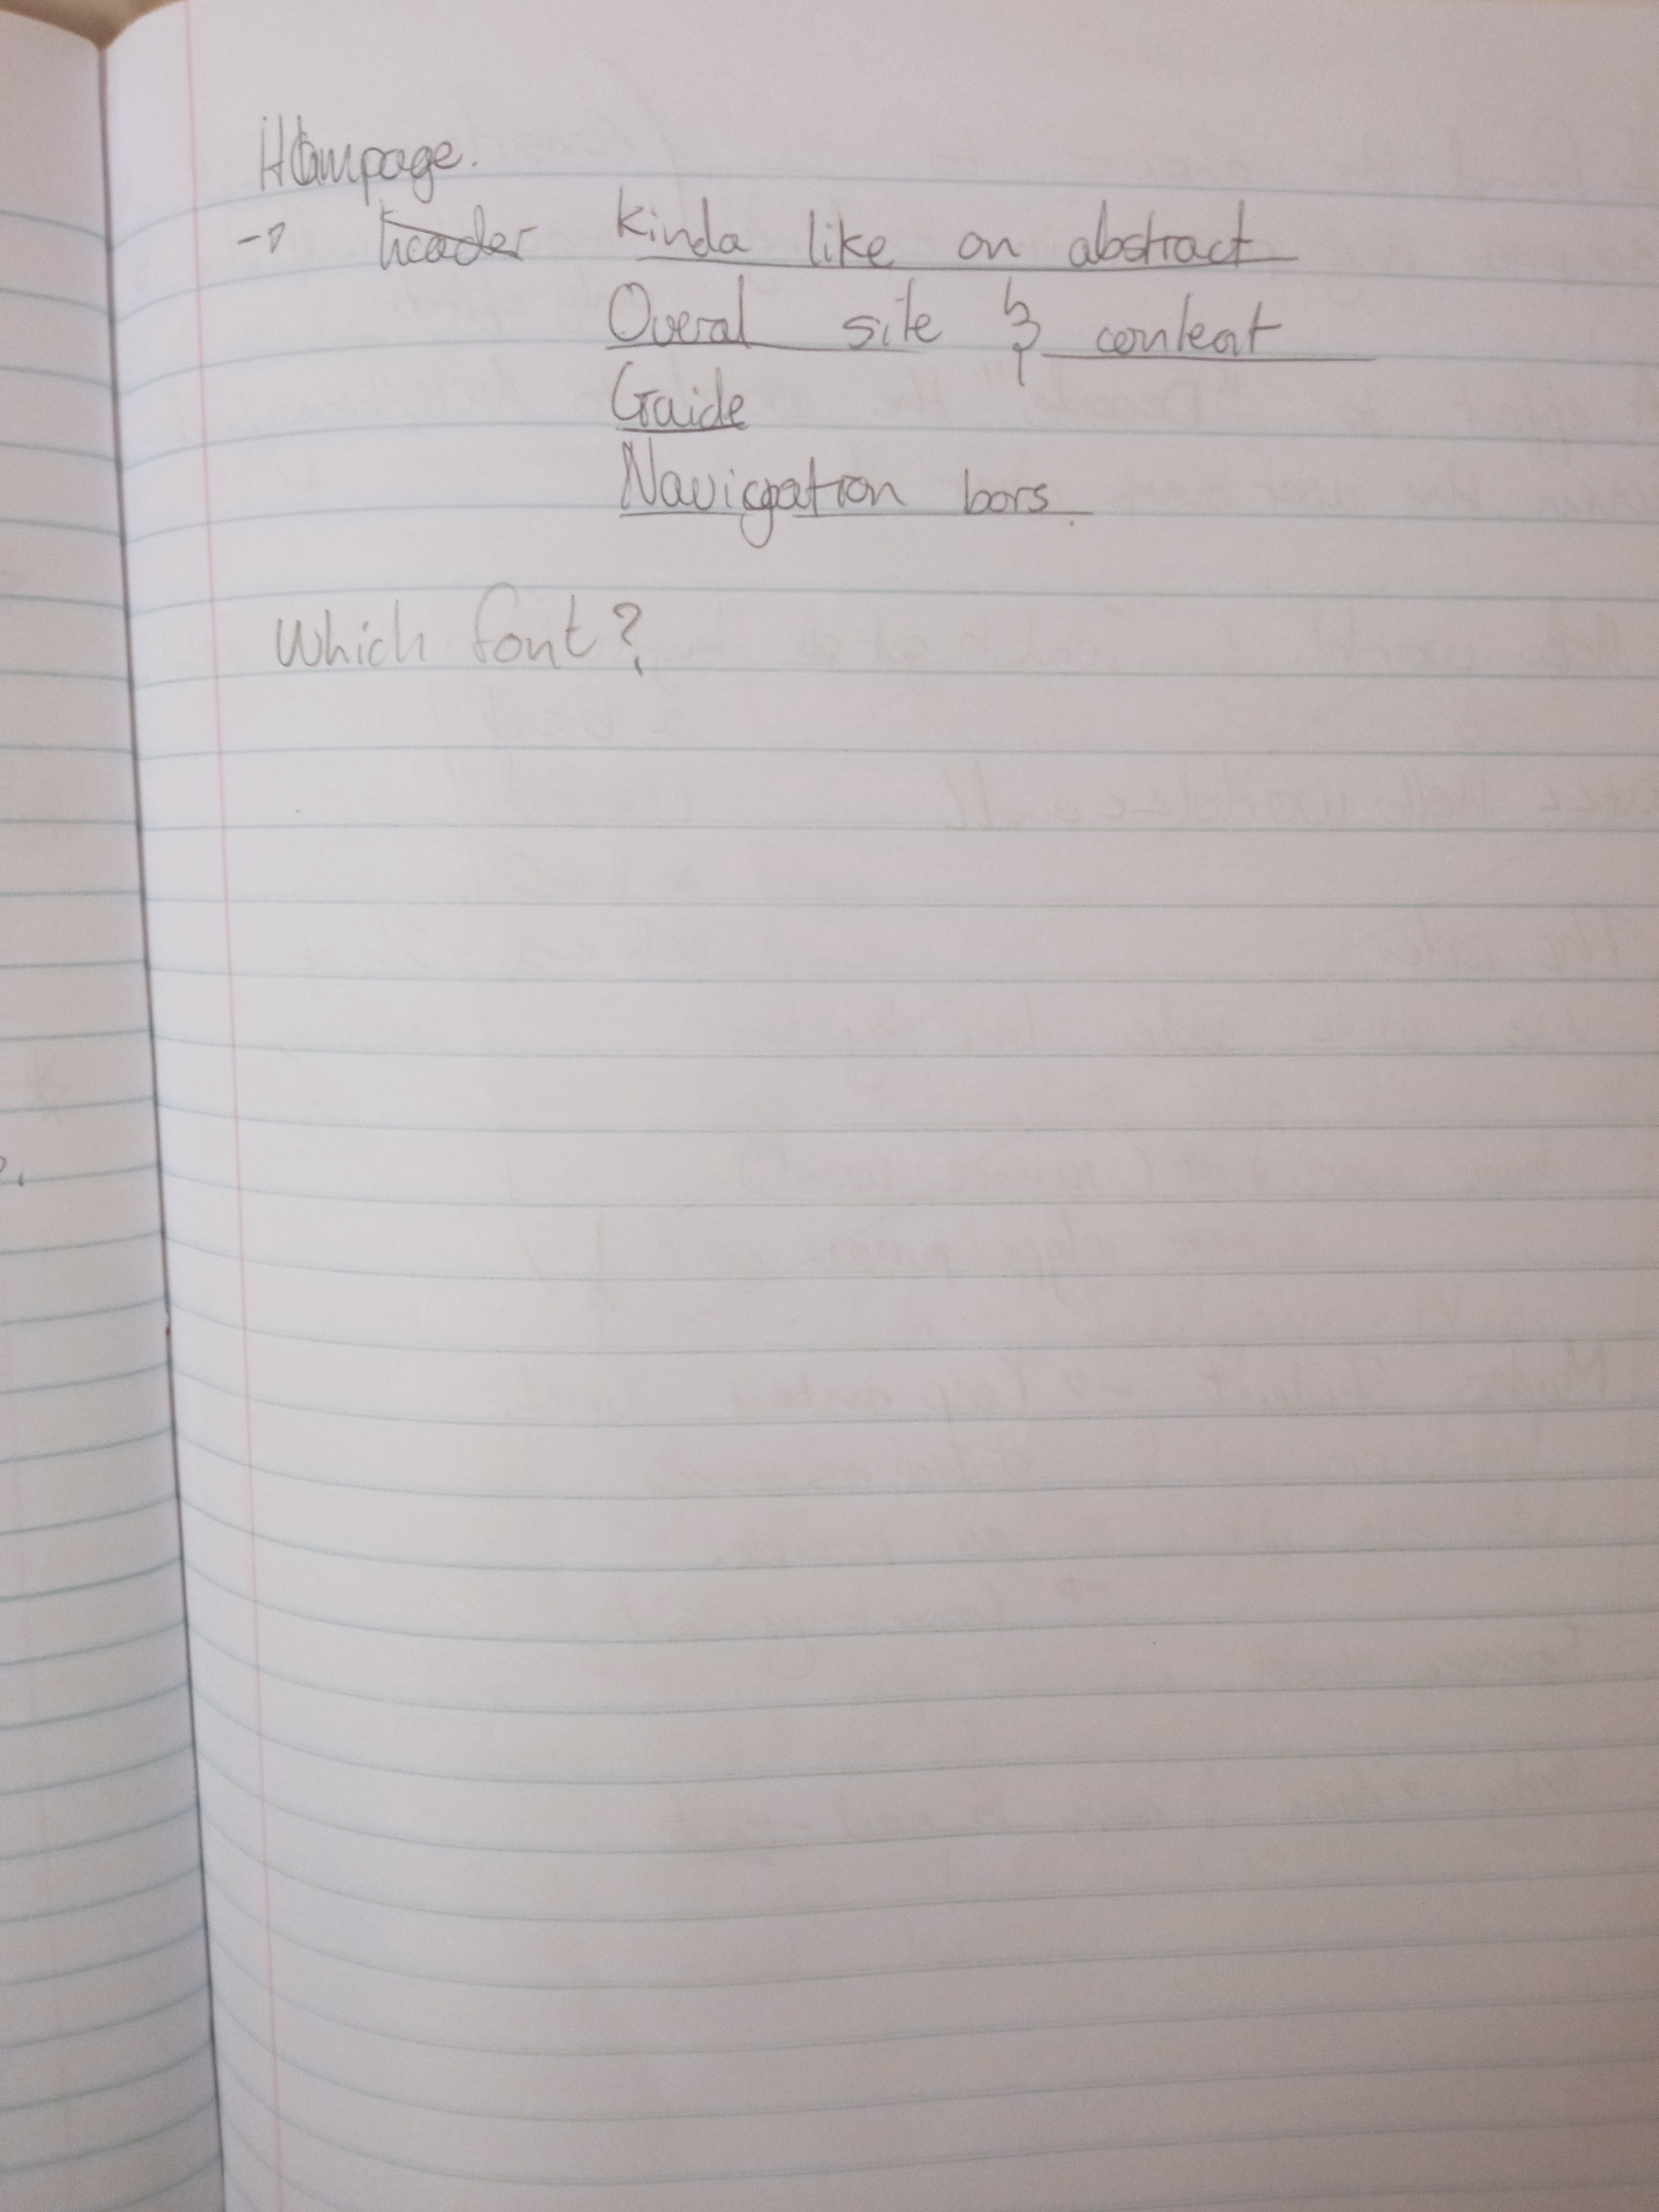 Hompage.
→ header Kinda like an abstract
Overal site & content
Guide
Navigation bars.
Which font?